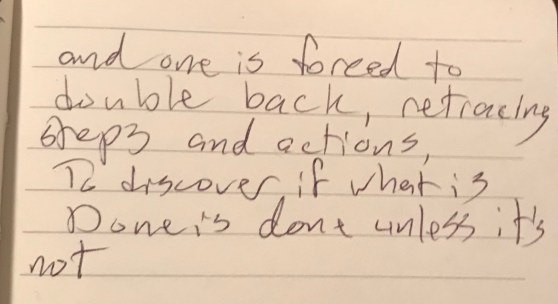 and one is forced to
double back, retracing
steps and actions,
To discover if what is
Done is done unless it's
not